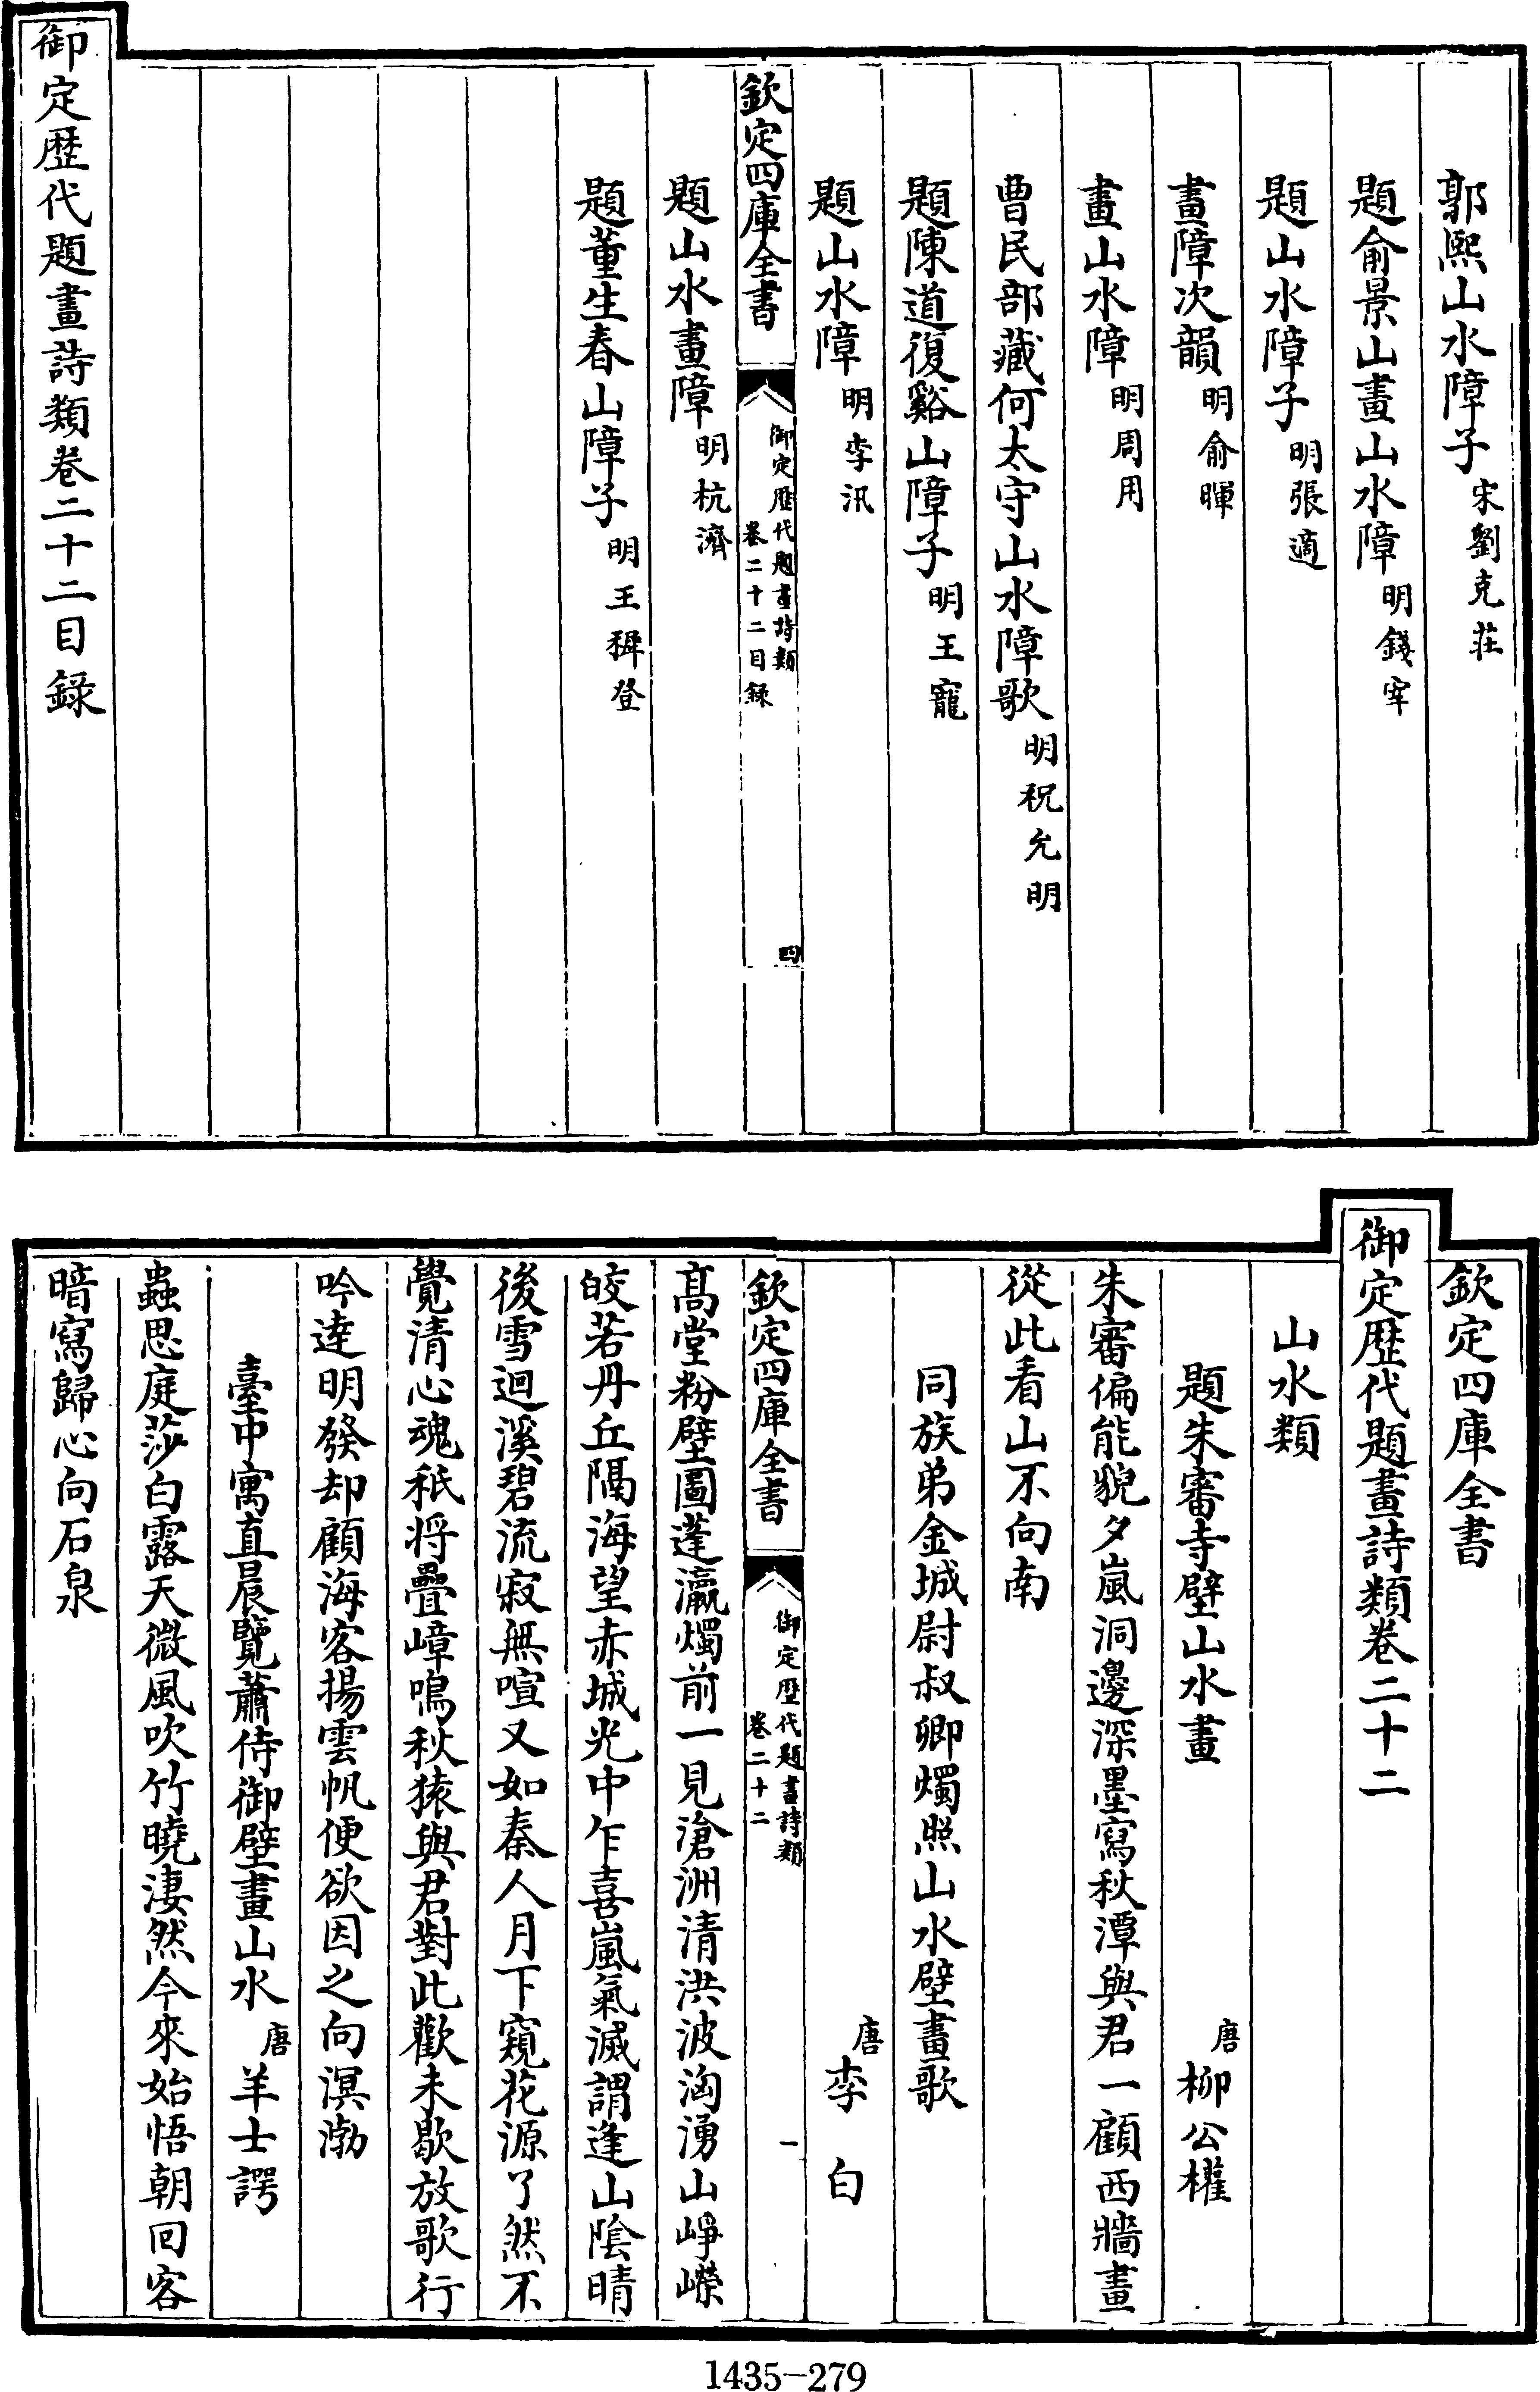 郭熙山水障子宋劉克莊
題俞景山畫山水障明錢宰
題山水障子明張適
畫障次韻明俞暉
畫山水障明周用
曹民部藏何太守山水障歌明祝允明
題陳道復谿山障子明王寵
題山水障明李汛
欽定四庫全書
御定歷代題畫詩類
卷二十二目録
四
題山水畫障明杭濟
題董生春山障子明王穉登
御定歷代題畫詩類卷二十二目録
欽定四庫全書
御定歷代題畫詩類卷二十二
山水類
題朱審寺壁山水畫 唐柳公權
朱審偏能貌夕嵐洞邊深墨寫秋潭與君一顧西牆畫
從此看山不向南
同族弟金城尉叔卿燭照山水壁畫歌
唐李白
欽定四庫全書
御定歷代題畫詩類
卷二十二
一
髙堂粉壁圖蓬瀛燭前一見滄洲清洪波洶湧山崢嶸
皎若丹丘隔海望赤城光中乍喜嵐氣滅謂逢山陰晴
後雪迴溪碧流寂無喧又如秦人月下窺花源了然不
覺清心魂秖将疊嶂鳴秋猿與君對此歡未歇放歌行
吟達明發却顧海客揚雲帆便欲因之向溟渤
臺中寓直晨覽蕭侍御壁畫山水 唐羊士諤
蟲思庭莎白露天微風吹竹曉淒然今來始悟朝回客
暗寫歸心向石泉
1435-279